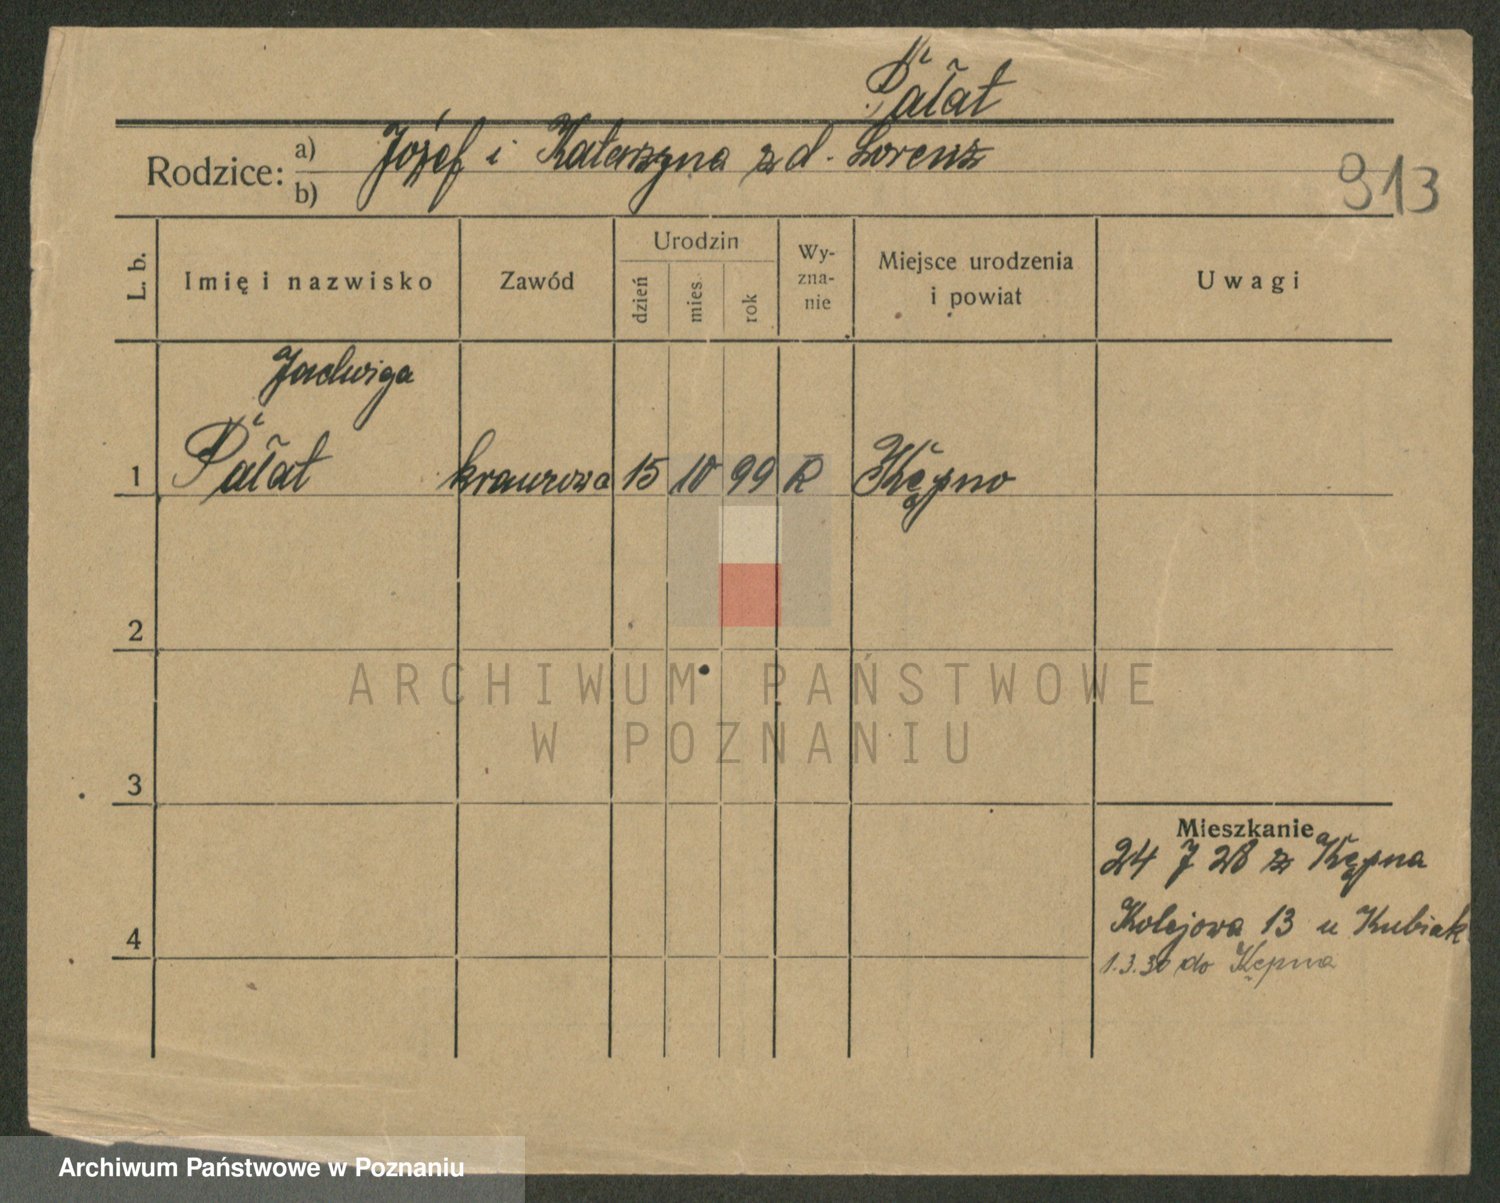 Pałat
Rodzice: a) b) Józef i Katarzyna z d. Lorenz
913
L. b.
Imię i nazwisko
Zawód
Urodzin
dzień
mies.
rok
Wy-
zna-
nie
Miejsce urodzenia
i powiat
Uwagi
Jadwiga
1 Pałat krawcowa 15 10 99 R Kępno
2
3
4
Mieszkanie
24 7 28 z Kępna
Kolejowa 13 u Kubiak
1.3.30 do Kępna
ARCHIWUM PAŃSTWOWE
W POZNANIU
Archiwum Państwowe w Poznaniu